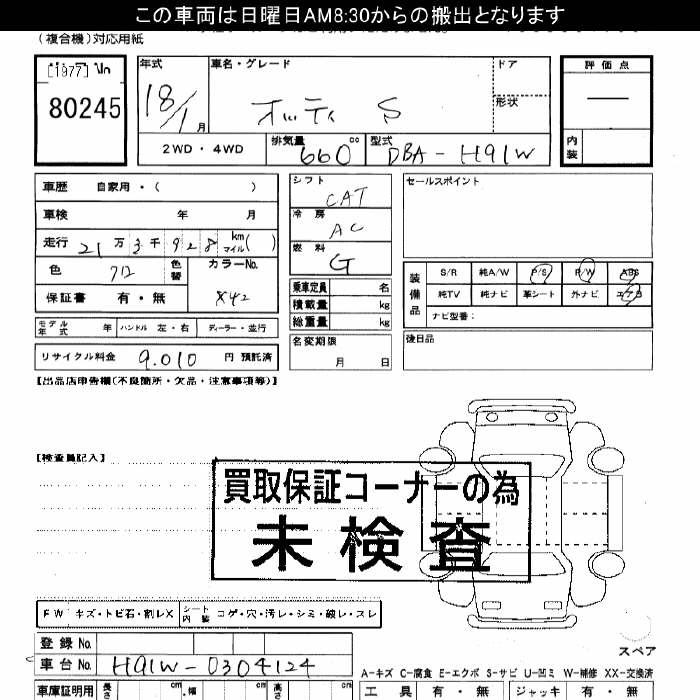 この車両は日曜日AM8:30からの搬出となります
(複合機)対応用紙
[1977] No
80245
年式
18/1 月
車名・グレード
オッティ S
ドア
形状
評価点
内装
2WD・4WD
排気量 660 cc
型式 DBA-H91W
車歴 自家用・( )
車検 年 月
走行 21万3千928 km マイル( )
色
色替
カラーNo.
X42
保証書 有・無
モデル年式 年 ハンドル 左・右 ディーラー・並行
リサイクル料金 9,010 円 預託済
シフト CAT
冷房 AC
燃料 G
乗車定員 名
積載量 kg
総重量 kg
名変期限
月 日
セールスポイント
装備品
S/R 純A/W P/S P/W ABS
純TV 純ナビ 革シート 外ナビ エアB
ナビ型番:
後日品
【出品店申告欄(不良箇所・欠品・注意事項等)】
【検査員記入】
買取保証コーナーの為
未検査
FW キズ・トビ石・割レX
シート内装 コゲ・穴・汚レ・シミ・破レ・スレ
登録No.
車台No. H91W-0304124
車庫証明用 長さ cm 幅 cm 高さ cm
スペア
A-キズ C-腐食 E-エクボ S-サビ U-凹ミ W-補修 XX-交換済
工具 有・無 ジャッキ 有・無